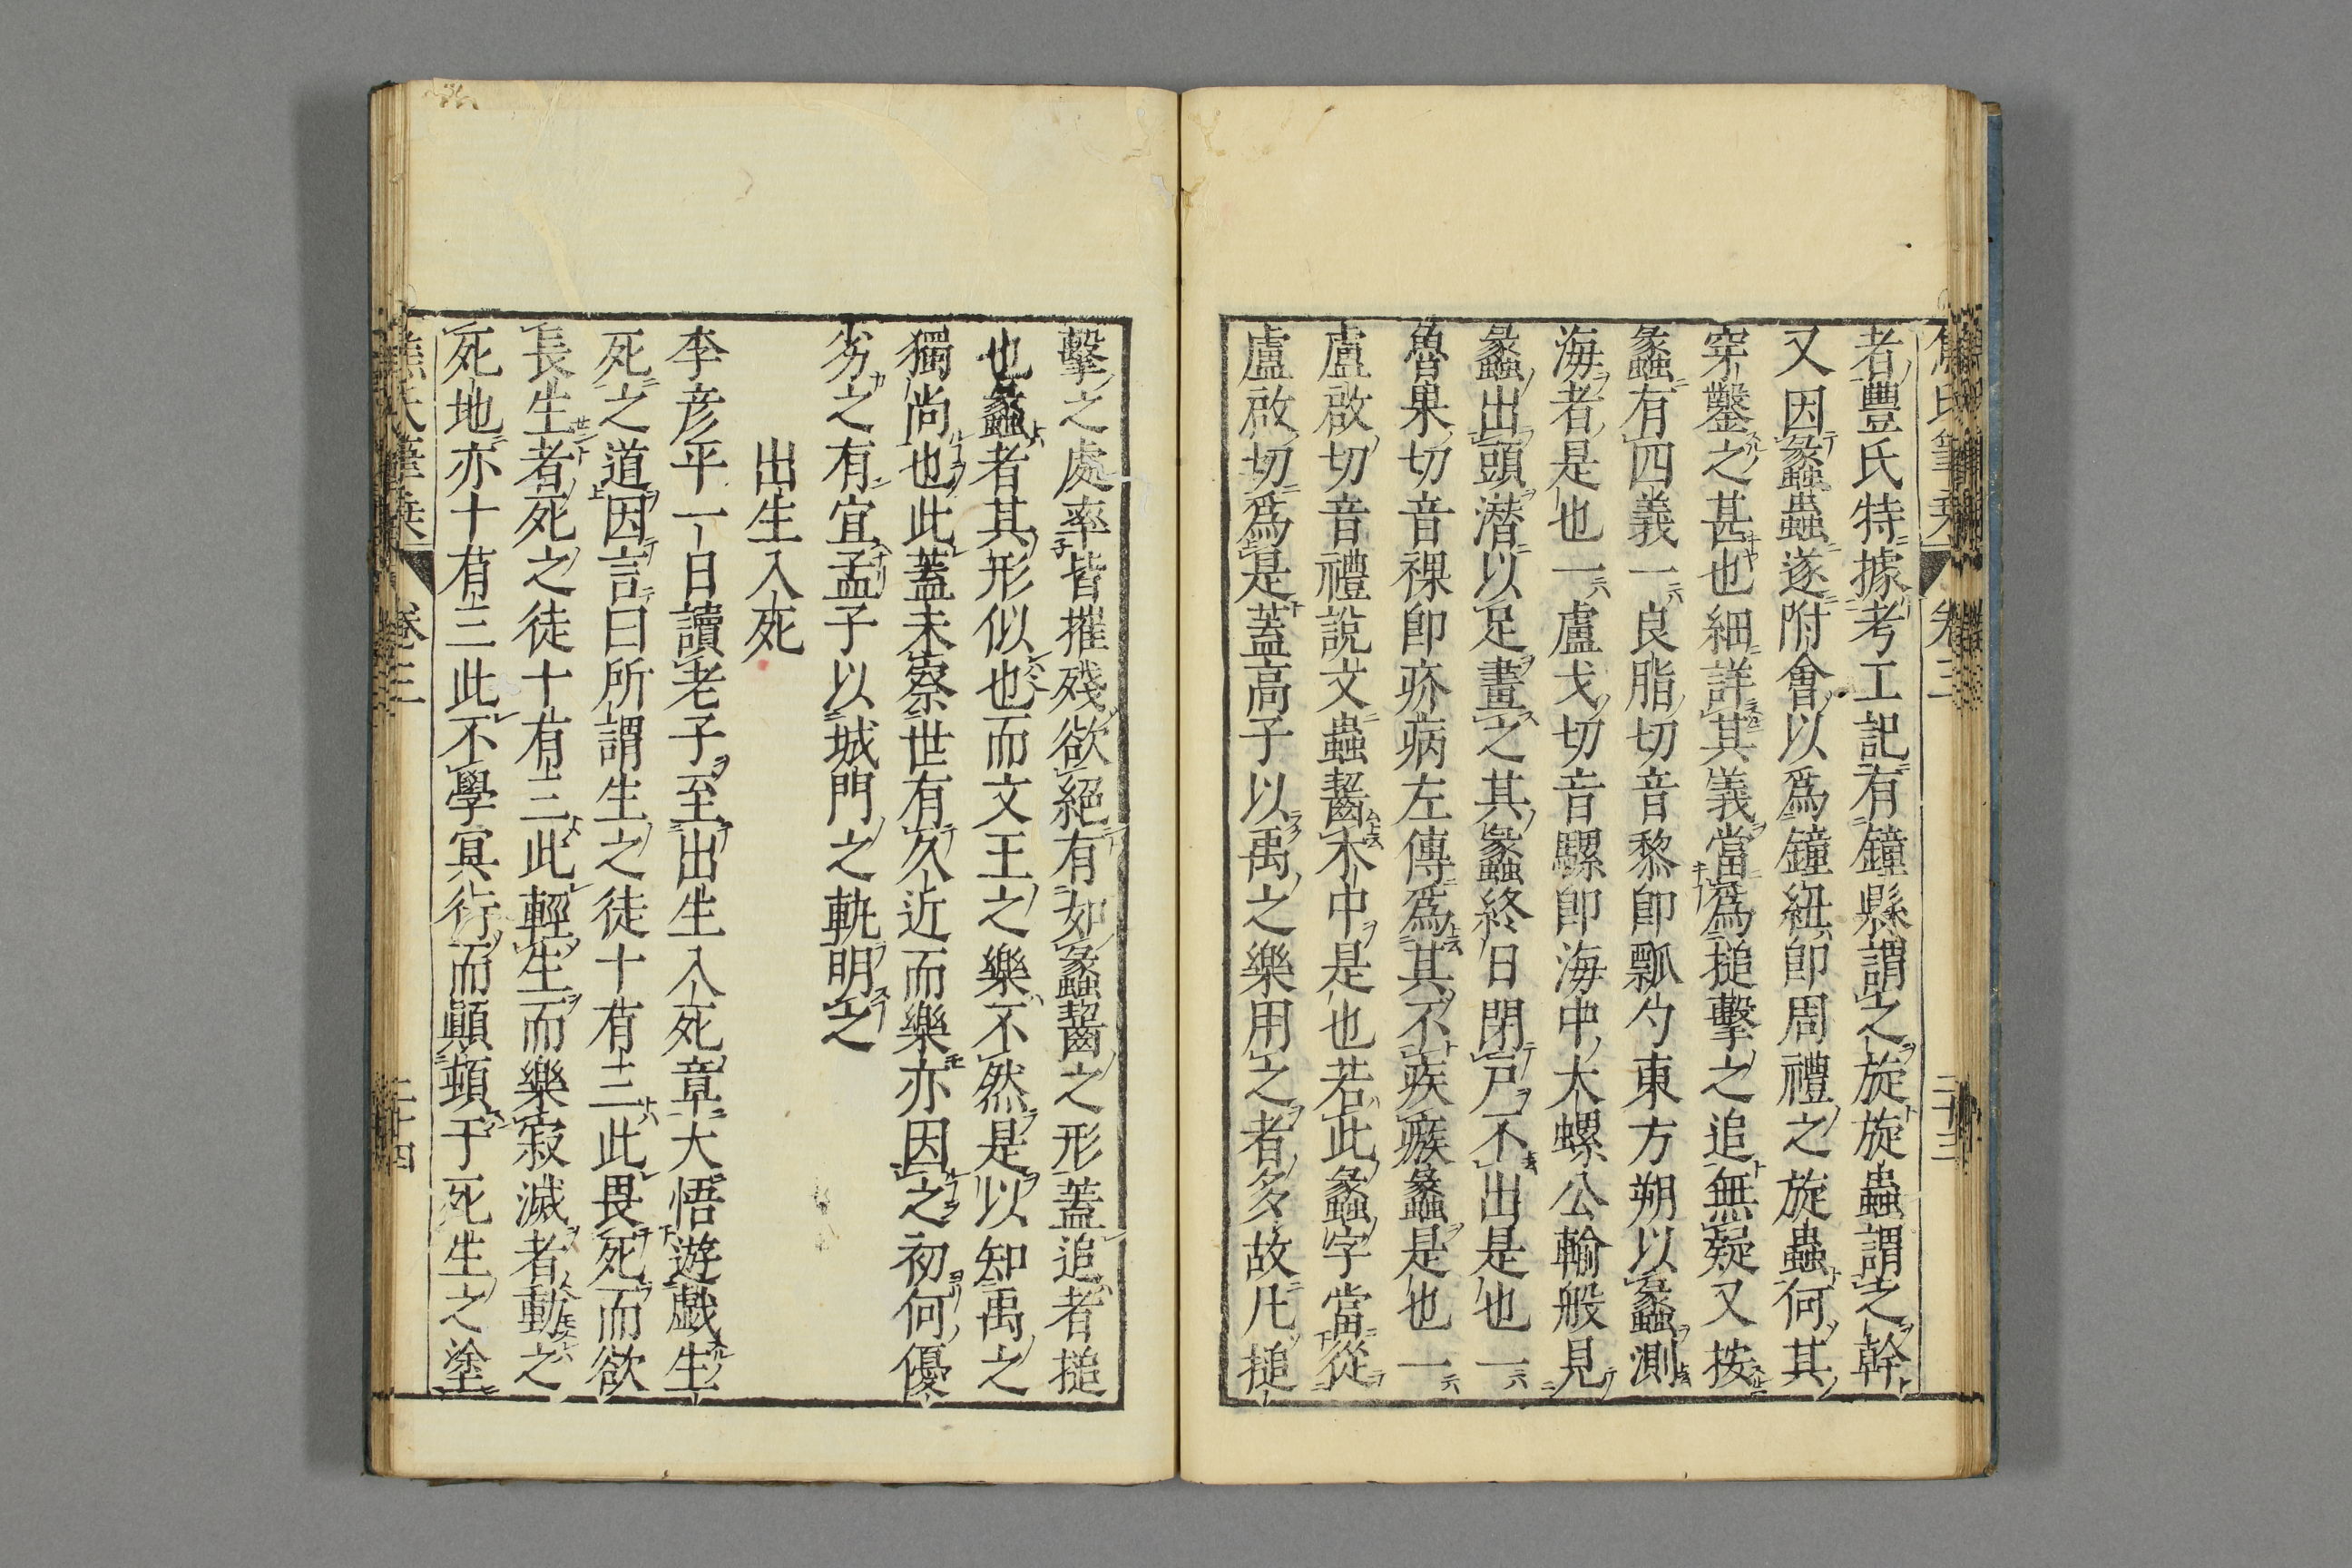 者豐氏特據考工記有鐘縣謂之旋旋蟲謂之幹
又因蠡蟲遂附會以爲鐘紐即周禮之旋蟲何其
穿鑿之甚也細詳其義當爲搥擊之追無疑又按
蠡有四義一良脂切音黎即瓢勺東方朔以蠡測
海者是也一盧戈切音騾即海中大螺公輸般見
蠡出頭潜以足畫之其蠡終日閉戸不出是也一
魯果切音裸即疥病左傳爲其不疾瘯蠡是也一
盧啟切音禮說文蟲齧木中是也若此蠡字當從
盧啟切爲是蓋高子以禹之樂用之者多故凡搥
擊之處率皆摧殘欲絕有如蠡齧之形蓋追者搥
也蠡者其形似也而文王之樂不然是以知禹之
獨尚也此蓋未察世有久近而樂亦因之初何優
劣之有宜孟子以城門之軌明之
出生入死
李彦平一日讀老子至出生入死章大悟遊戯生
死之道因言曰所謂生之徒十有三此畏死而欲
長生者死之徒十有三此輕生而樂寂滅者動之
死地亦十有三此不學冥行而顚頓于死生之塗
卷三
二十四